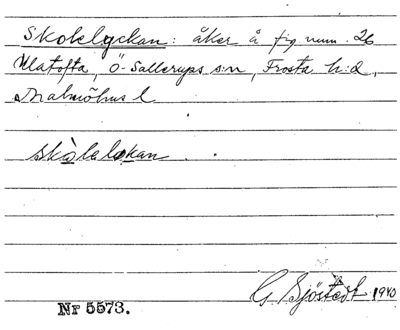 Skolelyckan: åker å fig num. 26
Ulatofta, Ö-Sallerups s:n, Frosta h:d,
Malmöhus l
skòlelekan.
G Sjöstedt 1940
Nr 5573.